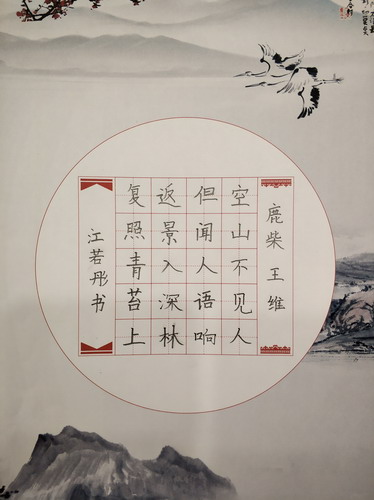 鹿柴 王维
空山不见人
但闻人语响
返景入深林
复照青苔上
江若彤书